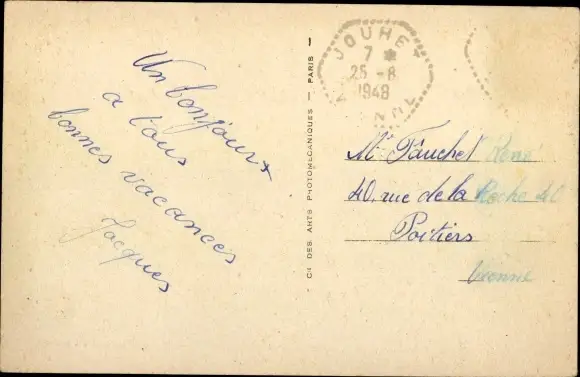 Un bonjours
a tous
bonnes vacances
Jacques
Cie DES ARTS PHOTOMECANIQUES — PARIS
JOUHET
7 *
25 -8
1948
VIENNE
Mr Fauchet René
40, rue de la Roche 40
Poitiers
Vienne